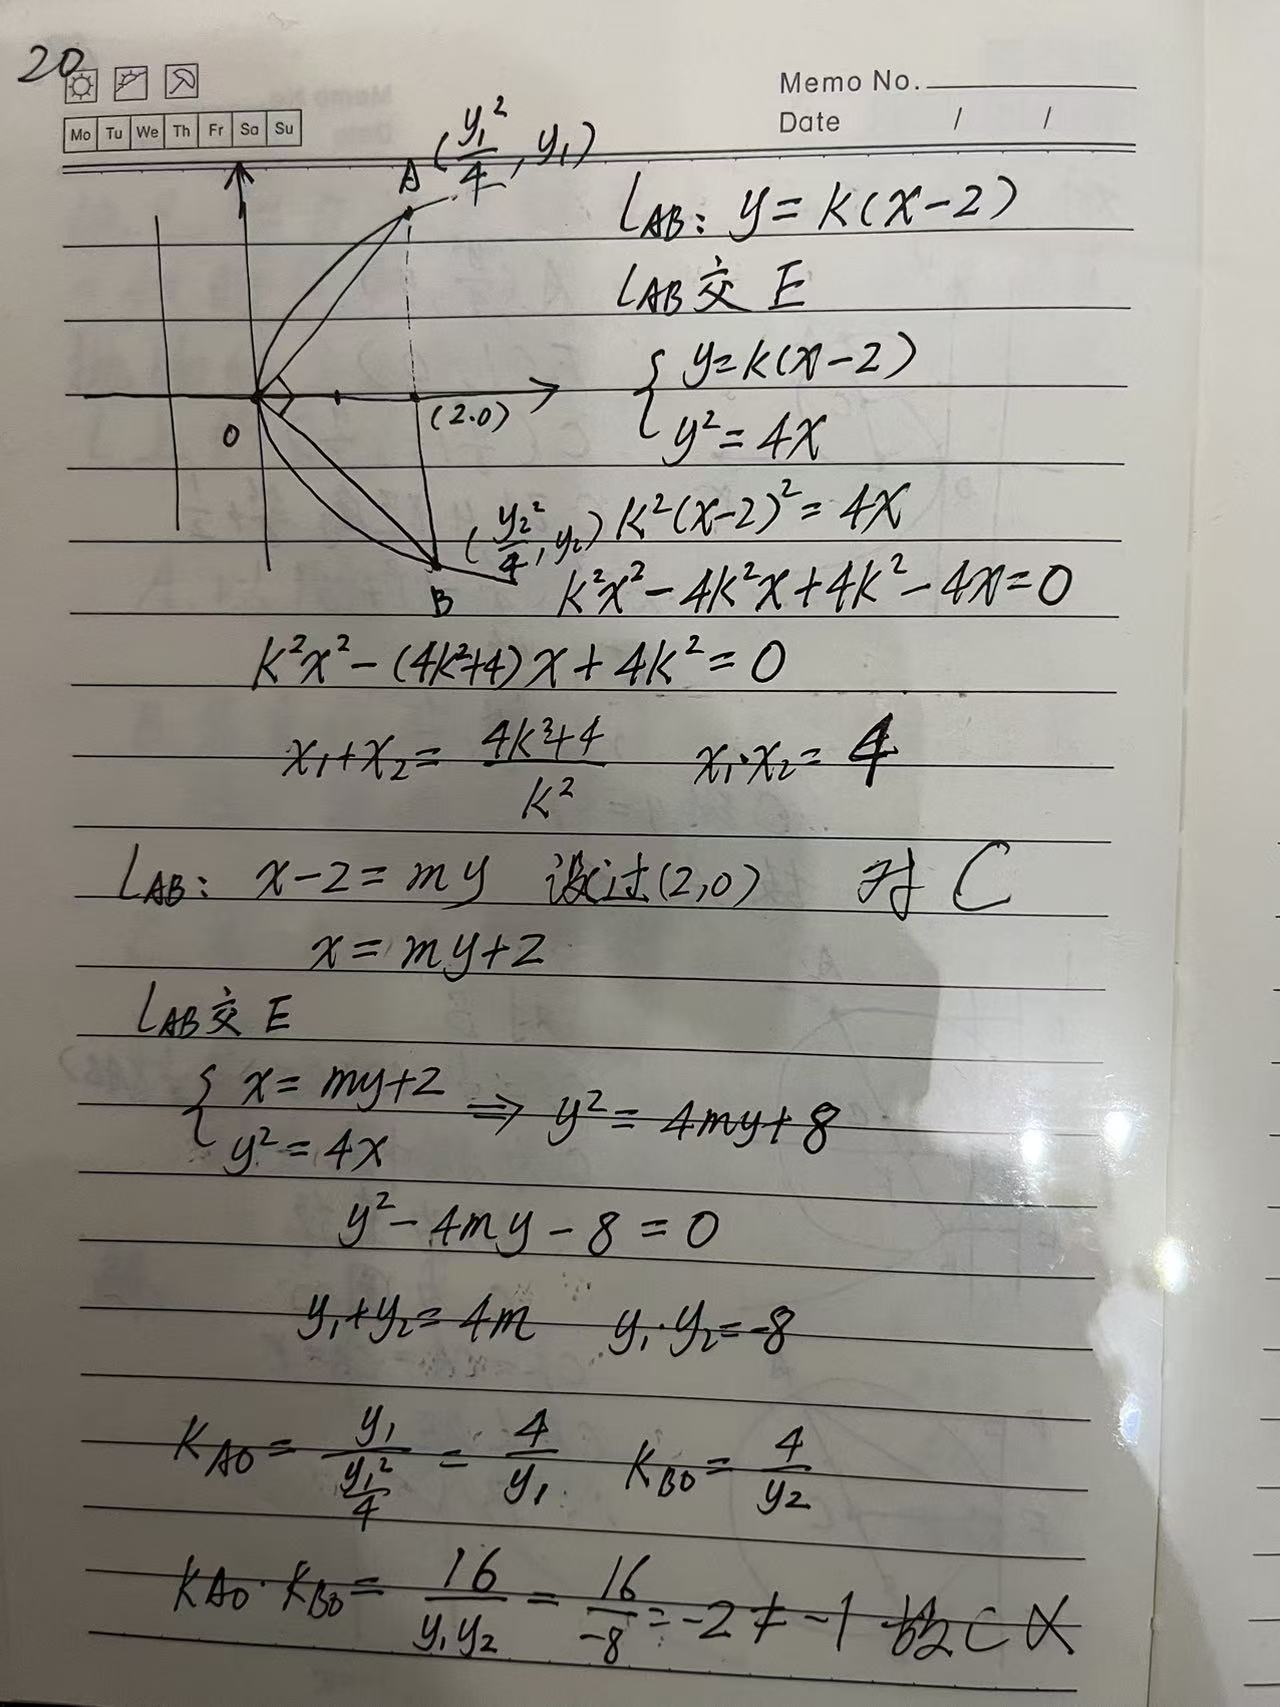 20
Memo No.
Mo Tu We Th Fr Sa Su
Date / /
A (y₁²/4, y₁)
L_AB: y=k(x-2)
L_AB交E
{ y=k(x-2)
{ y²=4x
O
(2.0)
(y₂²/4, y₂)
B
k²(x-2)²=4x
k²x²-4k²x+4k²-4x=0
k²x²-(4k²+4)x+4k²=0
x₁+x₂=(4k²+4)/k² x₁·x₂=4
L_AB: x-2=my 设过(2,0) 对C
x=my+2
L_AB交E
{ x=my+2
{ y²=4x
⇒ y²=4my+8
y²-4my-8=0
y₁+y₂=4m y₁·y₂=-8
K_AO=y₁/(y₁²/4)=4/y₁ K_BO=4/y₂
K_AO·K_BO=16/(y₁y₂)=16/(-8)=-2≠-1 故C×